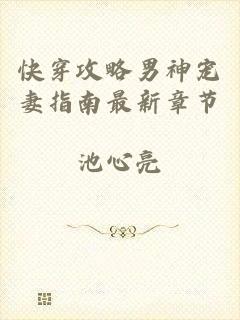 快穿攻略男神宠
妻指南最新章节
池心亮